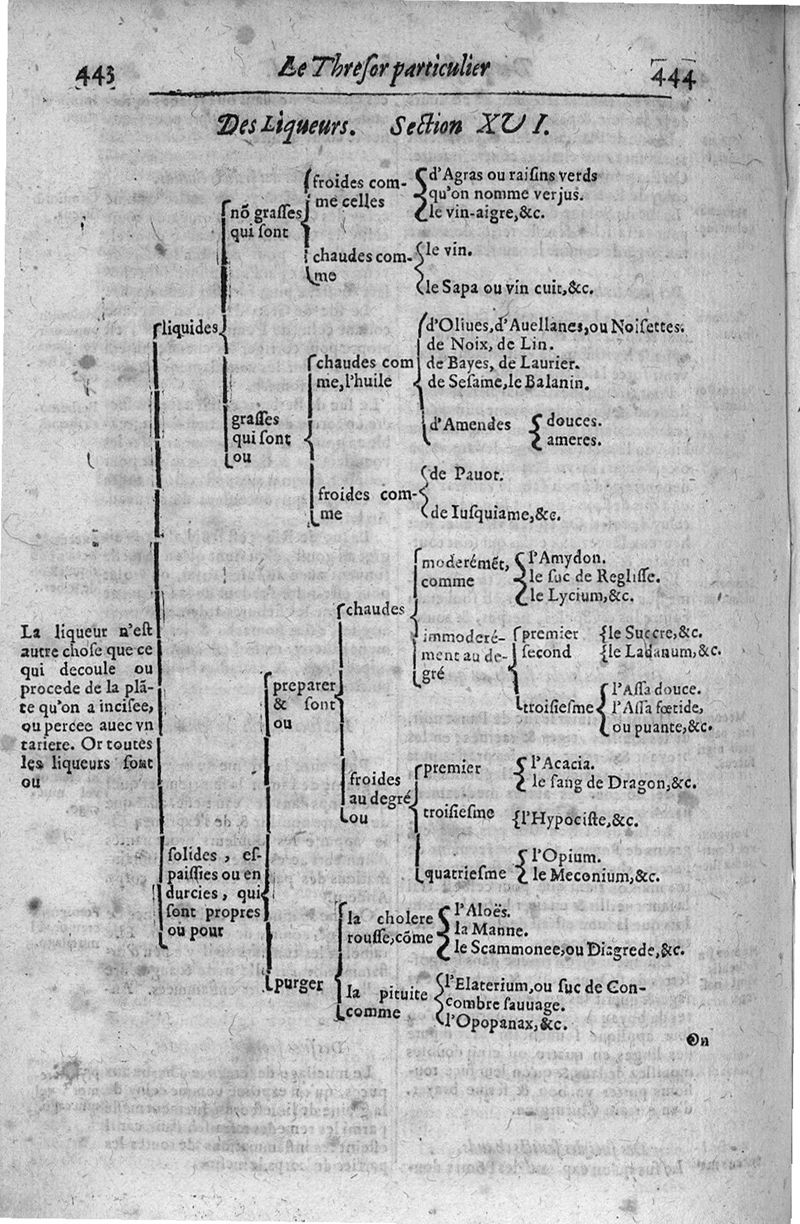 443
Le Thresor particulier
444
Des Liqueurs. Section XVI.
La liqueur n'est
autre chose que ce
qui decoule ou
procede de la plā-
te qu'on a incisee,
ou percee auec vn
tariere. Or toutes
les liqueurs sont
ou
liquides
nō grasses
qui sont
froides com-
me celles
d'Agras ou raisins verds
qu'on nomme verjus.
le vin-aigre,&c.
chaudes com-
me
le vin.
le Sapa ou vin cuit,&c.
grasses
qui sont
ou
chaudes com
me,l'huile
d'Oliues,d'Auellanes,ou Noisettes.
de Noix, de Lin.
de Bayes, de Laurier.
de Sesame,le Balanin.
d'Amendes
douces.
ameres.
froides com-
me
de Pauot.
de Iusquiame,&c.
solides, es-
paissies ou en
durcies, qui
sont propres
ou pour
preparer
& sont
ou
chaudes
moderémēt,
comme
l'Amydon.
le suc de Reglisse.
le Lycium,&c.
immoderé-
ment au de-
gré
premier
le Succre,&c.
second
le Ladanum,&c.
troisiesme
l'Assa douce.
l'Assa fœtide,
ou puante,&c.
froides
au degré
ou
premier
l'Acacia.
le sang de Dragon,&c.
troisiesme
l'Hypociste,&c.
quatriesme
l'Opium.
le Meconium,&c.
purger
la cholere
rousse,cōme
l'Aloës.
la Manne.
le Scammonee,ou Diagrede,&c.
la pituite
comme
l'Elaterium,ou suc de Con-
combre sauuage.
l'Opopanax,&c.
On